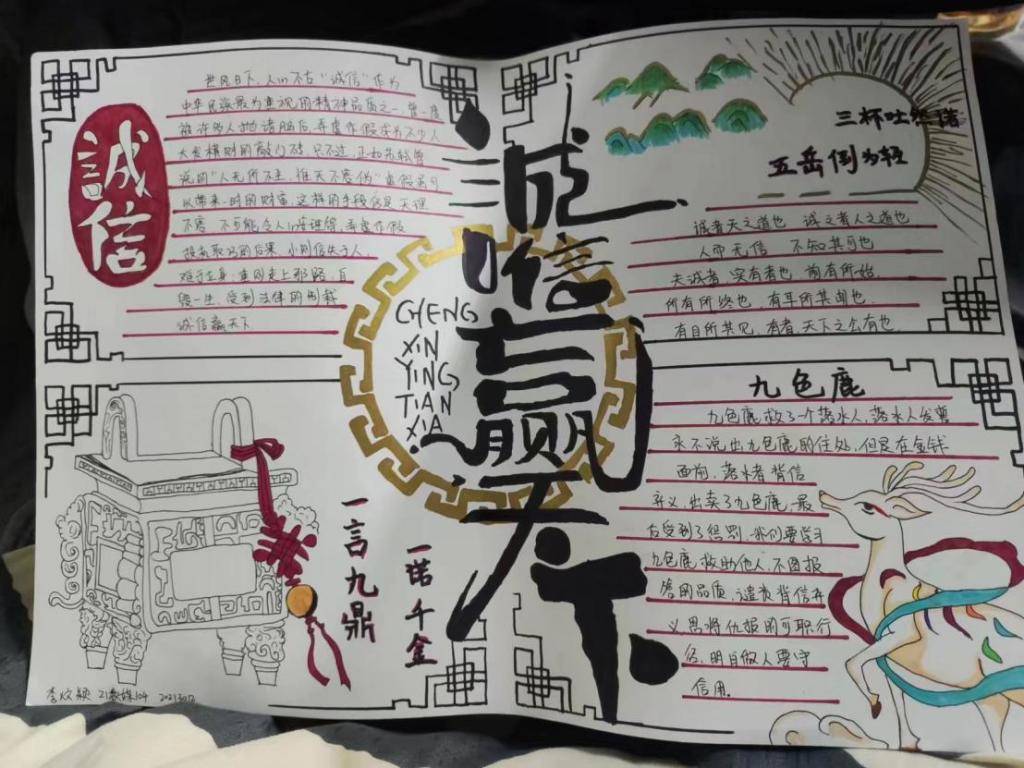 誠信
世风日下，人心不古“诚信”作为
中华民族最为重视的精神品质之一曾一度
被许多人抛诸脑后，弄虚作假成为不少人
大发横财的敲门砖，只不过，正如苏轼曾
说的“人无所不至，惟天不容伪”虚假虽可
以带来一时的财富，这样的手段仍是天理
不容，不可能令人心安理得，弄虚作假
投机取巧的后果，小则信失于人，
难于立身，重则走上邪路，后
悔一生，受到法律的制裁
诚信赢天下
诚信赢天下
CHENG
XIN
YING
TIAN
XIA
三杯吐然诺
五岳倒为轻
诚者天之道也 诚之者人之道也
人而无信 不知其可也
夫诚者，实有者也，前有所始，
所有所终也，有耳所共闻也，
有目所共见，有者，天下之公有也，
九色鹿
九色鹿救了一个落水人，落水人发誓
永不说出九色鹿的住处，但是在金钱
面前，落水者背信
弃义，出卖了九色鹿，最
后受到了惩罚，我们要学习
九色鹿救助他人，不图报
答的品质，谴责背信弃
义恩将仇报的可耻行
径，明白做人要守
信用。
一言九鼎
一诺千金
21数媒104